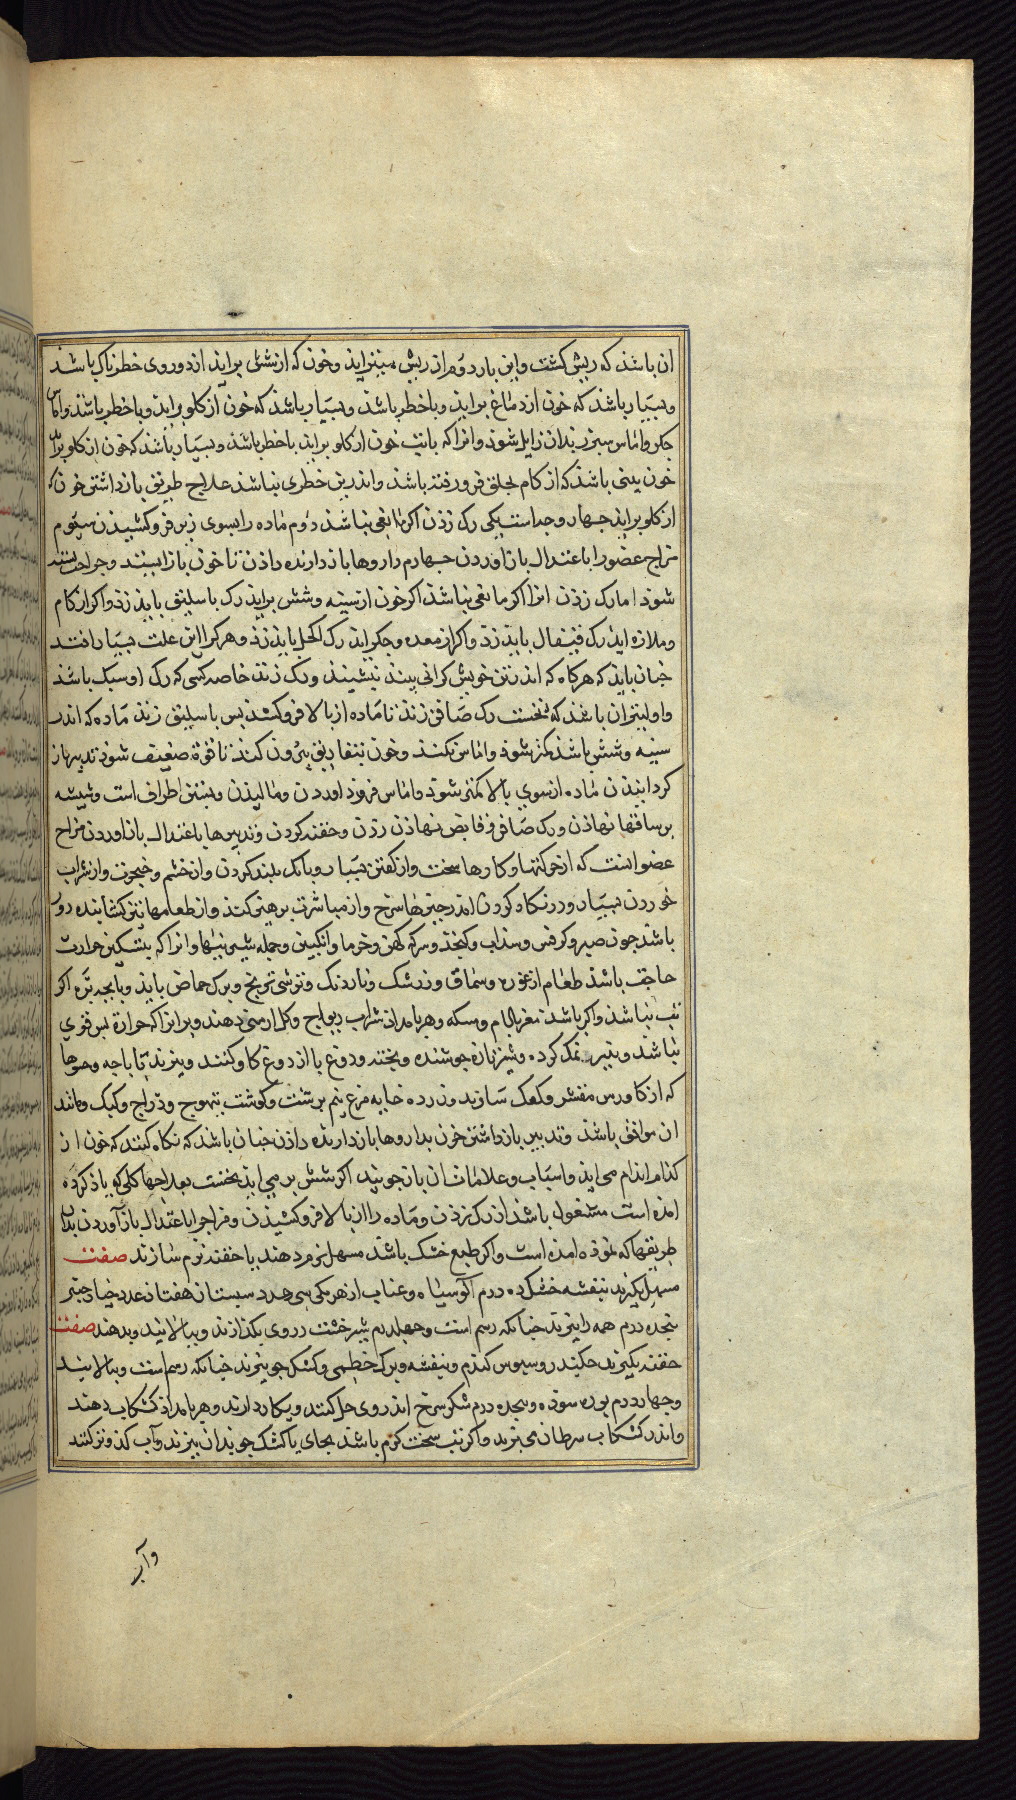 ان باشذ که ریش کشت واین بار دوم از ریش میزاید وخون که از شش براید ازو دوروی خطرناک باشذ
وبسیار باشذ که خون از دماغ براید وباخطر باشذ وبسیار باشذ که خون از کلو براید وباخطر باشذ واماس
جکر واماس سبرز بذان زایل شوذ وانرا که باتب خون از کلو براید باخطر باشذ وبسیار باشذ که خون از کلو براید
خون بینی باشذ که از کام بحلق فرو رفته باشذ واندرین خطری نباشذ علاج طریق بازداشتن خون که
از کلو براید جهار وجه است یکی رک زذن اکر مانعی نباشذ دوم ماده را بسوی زیرین فرو کشیذن سیوم
مزاج عضو را باعتدال باز اوردن جهارم داروها بازدارنده داذن تا خون باز ایستد وجراحت بسته
شوذ اما رک زذن انرا اکر مانعی نباشذ اکر خون از سینه وشش براید رک باسلیق بایذ زذ واکر از کام
وملازه ایذ رک قیفال بایذ زذ واکر از معده وجکر ایذ رک اکحل بایذ زذ وهر کرا این علت بسیار افتد
جنان بایذ که هرکاه که اندر تن خویش کرانی بیند نیشیند ورک زند خاصه کسی که رک او سبک باشذ
واولیتر ان باشذ که نخست رک صافن زند تا ماده از بالا فرو کشذ بس باسلیق زند ماده که اندر
سینه وشش باشذ کمتر شوذ واماس نکند وخون بتفاریق بیرون کند تا قوة ضعیف نشوذ تدبیر باز
کردانیدن ماده از سوی بالا کمتر شوذ واماس فروذ اوردن ومالیذن وبستن اطراف است وشیشه
بر ساقها نهاذن ورک صافن وقابض نهاذن زذن وحقنه کردن وتدبیرها باعتدال باز اوردن مزاج
عضو انست که از حرکتها وکارها سخت واز کفتن بسیار وبانک بلند کردن واز خشم وضجرت واز شراب
خوردن بسیار ودر نکاه کردن اندر جیزها سرخ واز مباشرت برهیز کند واز طعامها تیز کشاینده دور
باشذ جون صبر وکرفس وسذاب وکنجد وسرکه کهن وخرما وانکبین وجمله شیرینیها وانرا که بتسکین حرارت
حاجت باشذ طعام از غوره وسماق وزرشک وناردنک وترشی ترنج وبرک حماض بایذ وبابجه بره اکر
تب نباشذ واکر باشذ مغز بادام ومسکه وهر بامداد شراب ریواج وکل ارمنی دهند وبر انرا که حرارة بس قوی
نباشذ وبنیر نمک کرده وشیر تازه جوشنده وبخته ودوغ یا از دوغ کاو کنند وبیزند تا باجه وحسوها
که از کاورس مقشر وکعک سازند وزرده خایه مرغ نیم برشت وکوشت تیهوج ودراج وکبک ومانند
ان موافق باشذ وتدبیر بازداشتن خون بداروها بازدارنده داذن جنان باشذ که نکاه کنند که خون از
کذام اندام می ایذ واسباب وعلامات ان باز جویند اکر شش بر می ایذ نخست بعلاجها کلی که یاذ کرده
امذه است مشغول باشذ از رک زذن وماده را از بالا فرو کشیذن ومزاج را باعتدال باز آوردن بذان
طریقها که نموذه امذه است واکر طبع خشک باشذ مسهل نرم دهند یا حقنه نرم سازند صفت
مسهل بکیرند بنفشه خشک ده درم الوسیاه وعناب از هریکی سی عدد سبستان هفتاذ عدد خیارجنبر
بنجده درم همه را بیزند جنانکه رسم است وجهل درم شیرخشت درروی بکذازند وببالایند وبدهند صفت
حقنه بکیرند جکندر وسبوس کندم وبنفشه وبرک خطمی وکشک جو ببزند جنانکه رسم است وببالایند
وجهار درم بوره سوذه وبنجده درم شکر سرخ اندر وی حل کنند وبکار دارند وهر بامداذ کشکاب دهند
واندر کشکاب سرطان می بزند واکر تب سخت کرم باشذ بجای با کشک جو بذان ببزند وآب کدو تر کنند
وآب